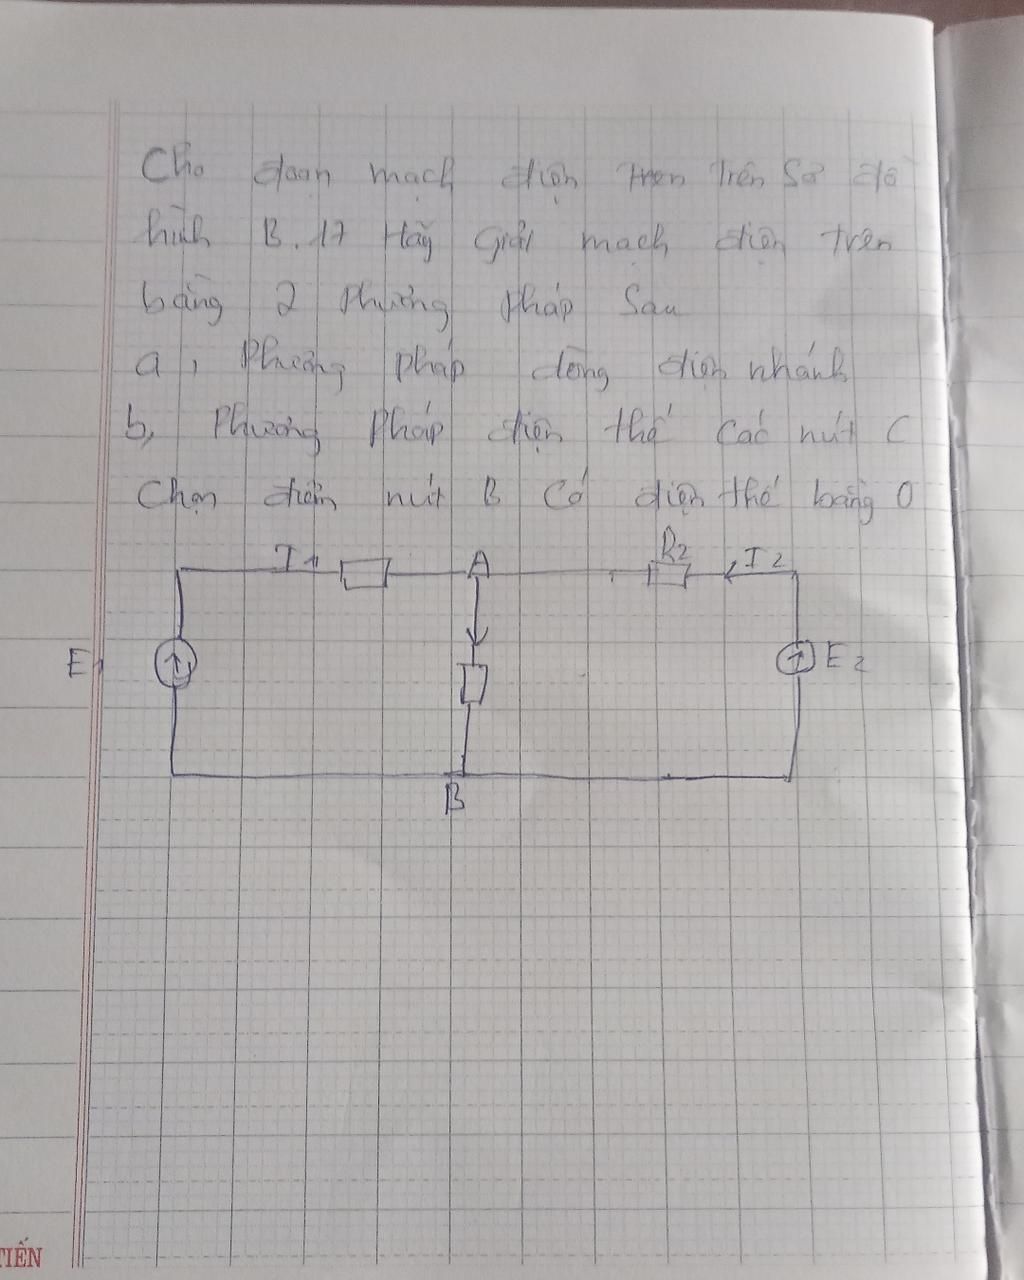 Cho đoạn mạch điện trên trên Sơ đồ
hình B.17 Hãy Giải mạch điện trên
bằng 2 Phương Pháp Sau
a, Phương pháp dòng điện nhánh
b, Phương Pháp điện thế các nút C
Chọn điểm nút B Có điện thế bằng 0
I1 A R2 I2
E1 E2
B
TIẾN